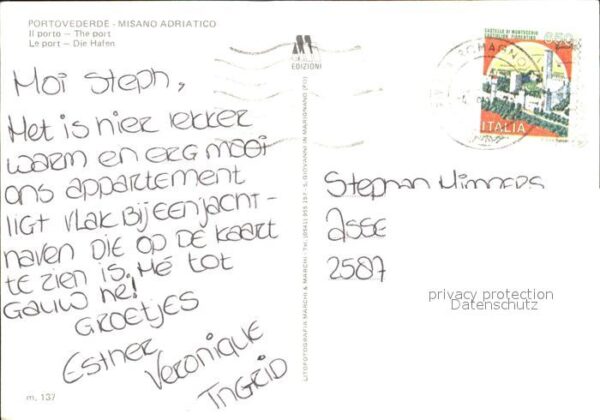 PORTOVEDERDE - MISANO ADRIATICO
Il porto — The port
Le port — Die Hafen
EDIZIONI
CASTELLO DI MONTECCHIO
CASTIGLION FIORENTINO
650
ITALIA
ROMAGNOLO
Moi Steph,
Het is hier lekker
warm en erg mooi
ons appartement
ligt vlak bij een jacht-
haven die op de kaart
te zien is. Hé tot
gauw hé!
Groetjes
Esther
Veronique
Ingrid
Stephan
2587
LITOFOTOGRAFIA MARCHI & MARCHI - Tel. (0541) 955.157 - S. GIOVANNI IN MARIGNANO (FO)
privacy protection
Datenschutz
m. 137